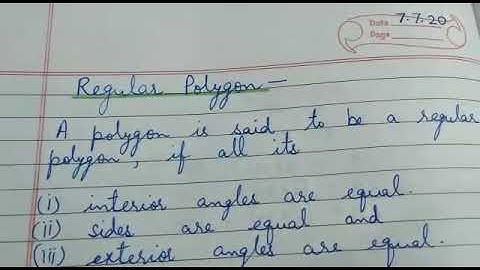 Date 7.7.20
Page
Regular Polygon-
A polygon is said to be a regular
polygon, if all its
(i) interior angles are equal.
(ii) sides are equal and
(iii) exterior angles are equal.